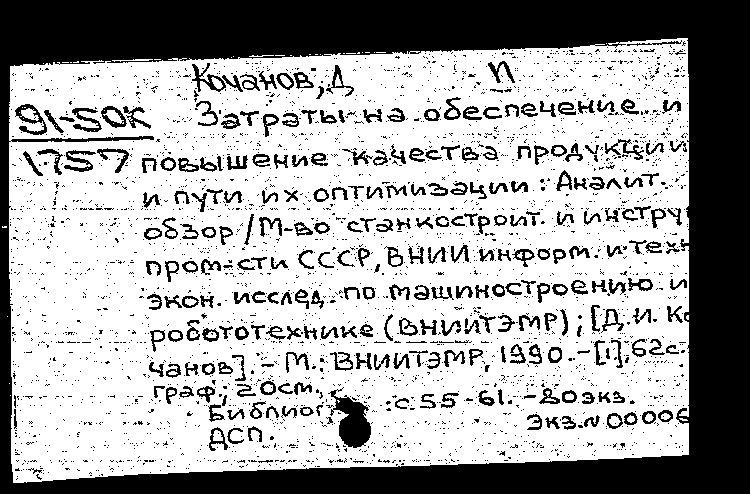 Кочанов, Д п
91-50К Затраты на обеспечение и
1757 повышение качества продукции
и пути их оптимизации: Аналит.
обзор / М-во станкостроит. и инстру
пром-сти СССР, ВНИИ информ. и техн
экон. исслед. по машиностроению и
робототехнике (ВНИИТЭМР); [Д. И. Ко
чанов]. - М.: ВНИИТЭМР, 1990. - [1], 62с.
граф.; 20см.
Библиог : с. 55-61. - 80экз.
Экз. N 00006
ДСП.